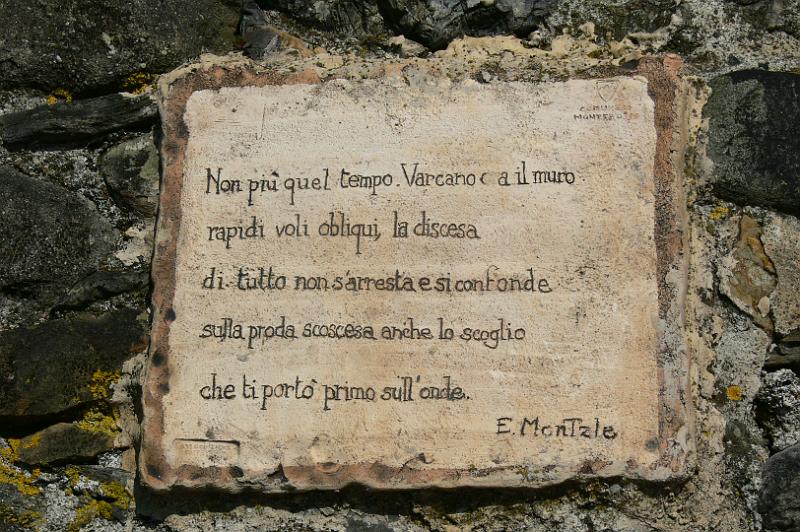 COMUNE
Non più quel tempo. Varcano a il muro
rapidi voli obliqui, la discesa
di tutto non s'arresta e si confonde
sulla proda scoscesa anche lo scoglio
che ti portò primo sull'onde.
E. MonTale